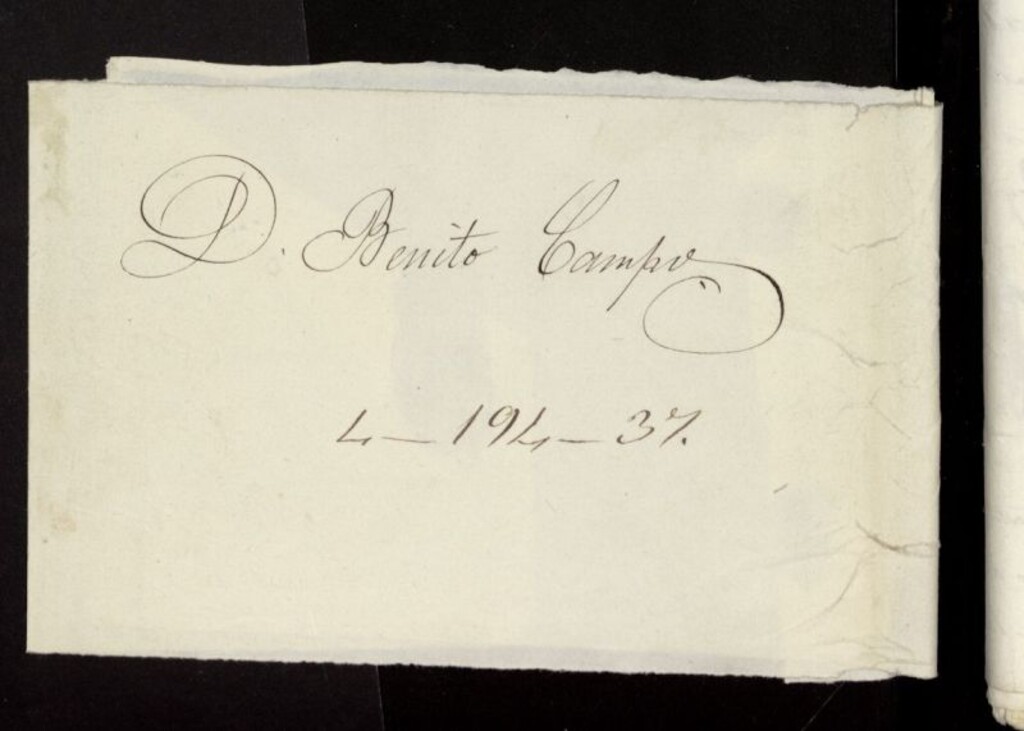 D. Benito Campo
4 — 194 — 37.